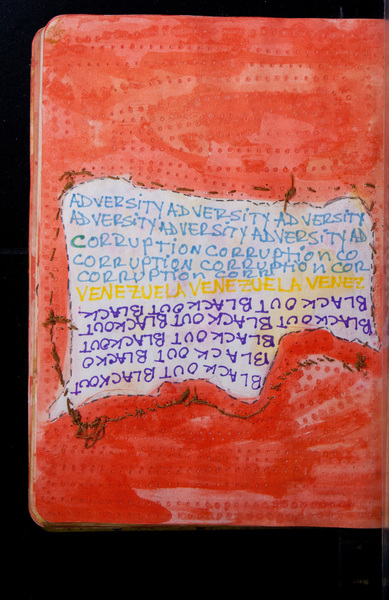 ADVERSITY ADVERSITY ADVERSITY
ADVERSITY ADVERSITY ADVERSITY AD
CORRUPTION CORRUPTION CO
CORRUPTION CORRUPTION COR
CORRUPTION CORRUPTION
VENEZUELA VENEZUELA VENEZ
BLACK OUT BLACK OUT BLACK
BLACK OUT BLACK OUT BLACKOUT
BLACK OUT BLACK OUT
BLACK OUT BLACK O
BLACK OUT BLACKOUT